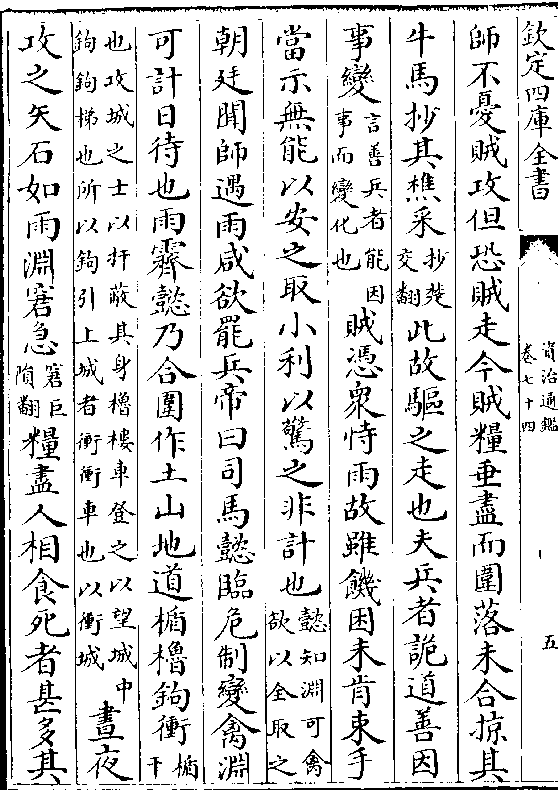 欽定四庫全書
資治通鑑
卷七十四
五
師不憂賊攻但恐賊走今賊糧垂盡而圍落未合掠其
牛馬抄其樵采抄楚交翻此故驅之走也夫兵者詭道善因
事變言善兵者能因事而變化也賊憑衆恃雨故雖饑困未肯束手
當示無能以安之取小利以驚之非計也懿知淵可禽欲以全取之
朝廷聞師遇雨咸欲罷兵帝曰司馬懿臨危制變禽淵
可計日待也雨霽懿乃合圍作土山地道楯櫓鉤衝楯干
也攻城之士以扞蔽其身櫓樓車登之以望城中鉤鉤梯也所以鉤引上城者衝衝車也以衝城晝夜
攻之矢石如雨淵窘急窘巨隕翻糧盡人相食死者甚多其